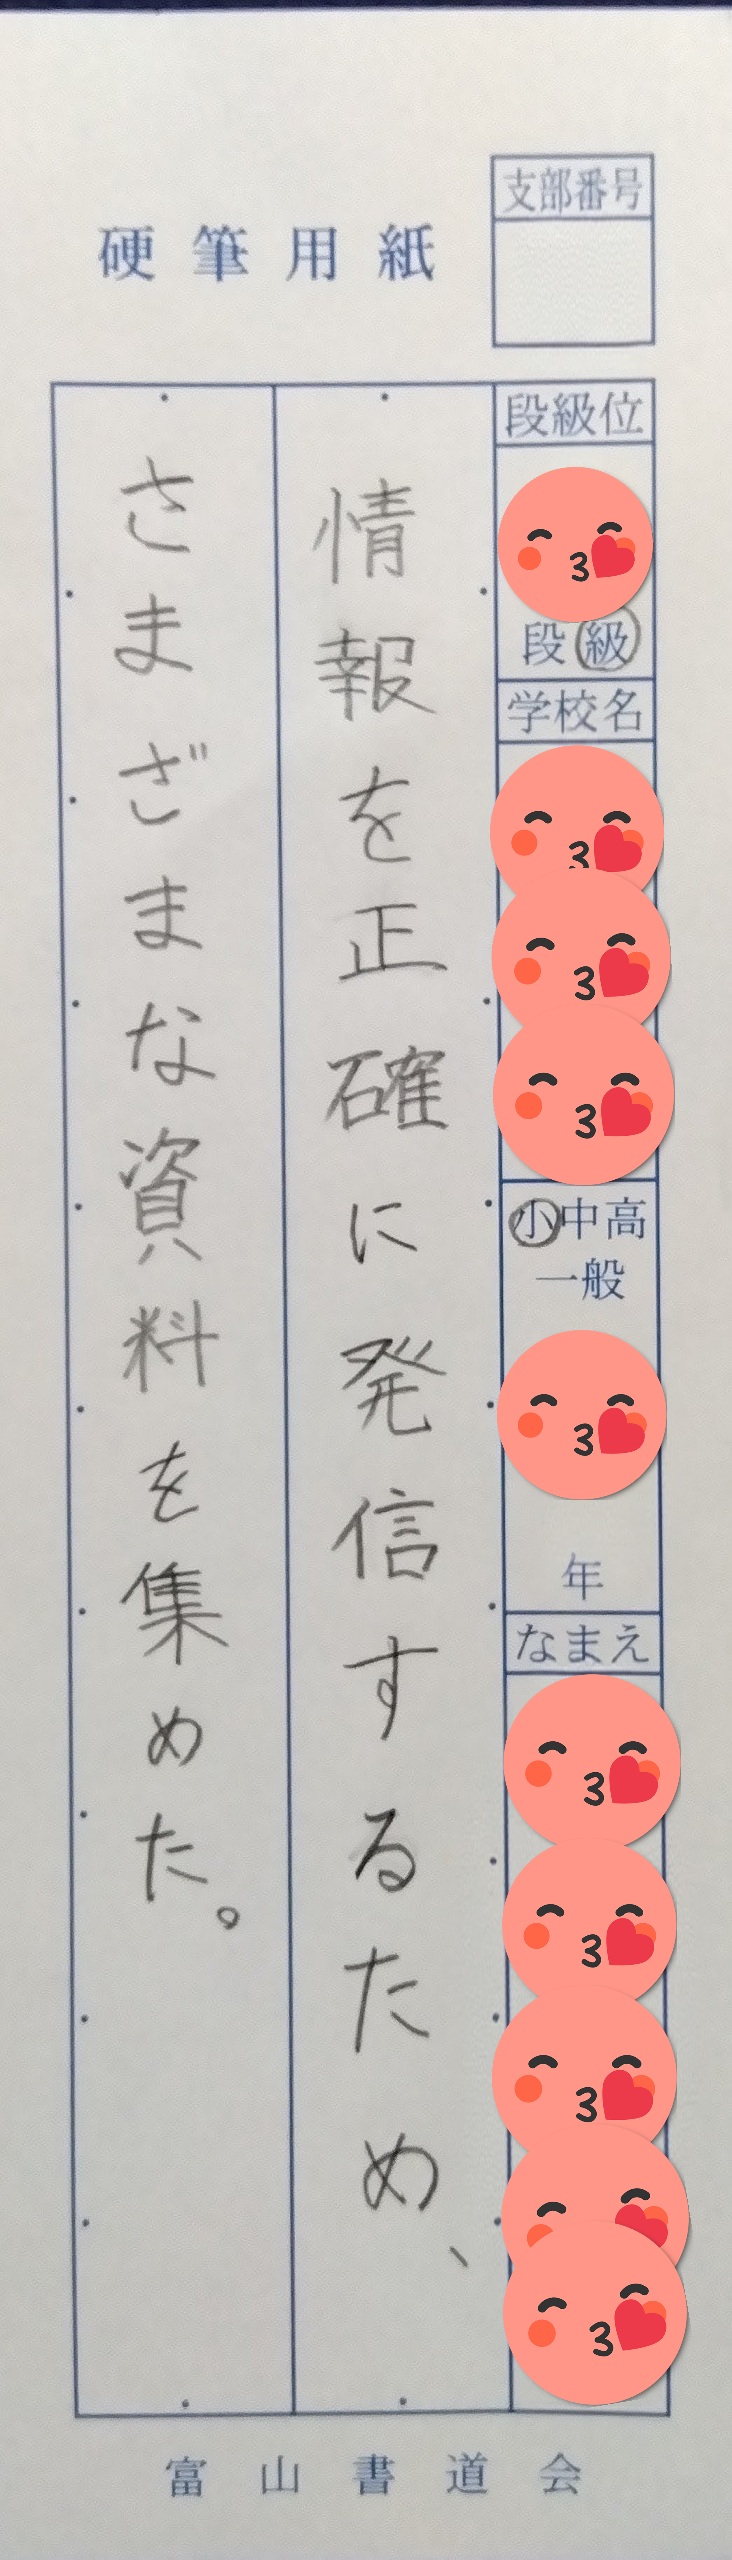 支部番号
硬筆用紙
段級位
段級
学校名
小中高
一般
年
なまえ
情報を正確に発信するため、
さまざまな資料を集めた。
富山書道会